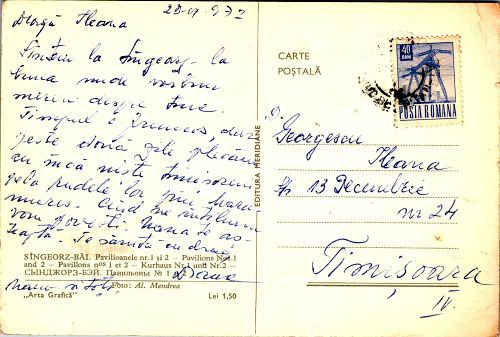 28-07-972
Dragă Ileana
Sîntem la Sîngeorz - la
buna unde vorbim
mereu despre
Timpul e frumos,
peste două zile plecăm
cu încă niște timișoreni
pe la rudele lor prin Mara-
mureș. Cînd ne întîlnim
vom povesti. Mama te aș-
teaptă. Te sărută cu drag
SÎNGEORZ-BĂI. Pavilioanele nr. 1 și 2 — Pavilions No.s 1
and 2 — Pavillons nos 1 et 2 — Kurhaus Nr. 1 und Nr. 2 —
СЫНДЖОРЗ-БЭЙ. Павильоны № 1
Foto: Al. Mendrea
„Arta Grafică"
Lei 1,50
EDITURA MERIDIANE
CARTE
POȘTALĂ
40
BANI
POSTA ROMANA
Georgescu
Ileana
13 Decembrie
nr 24
Timișoara
IV.